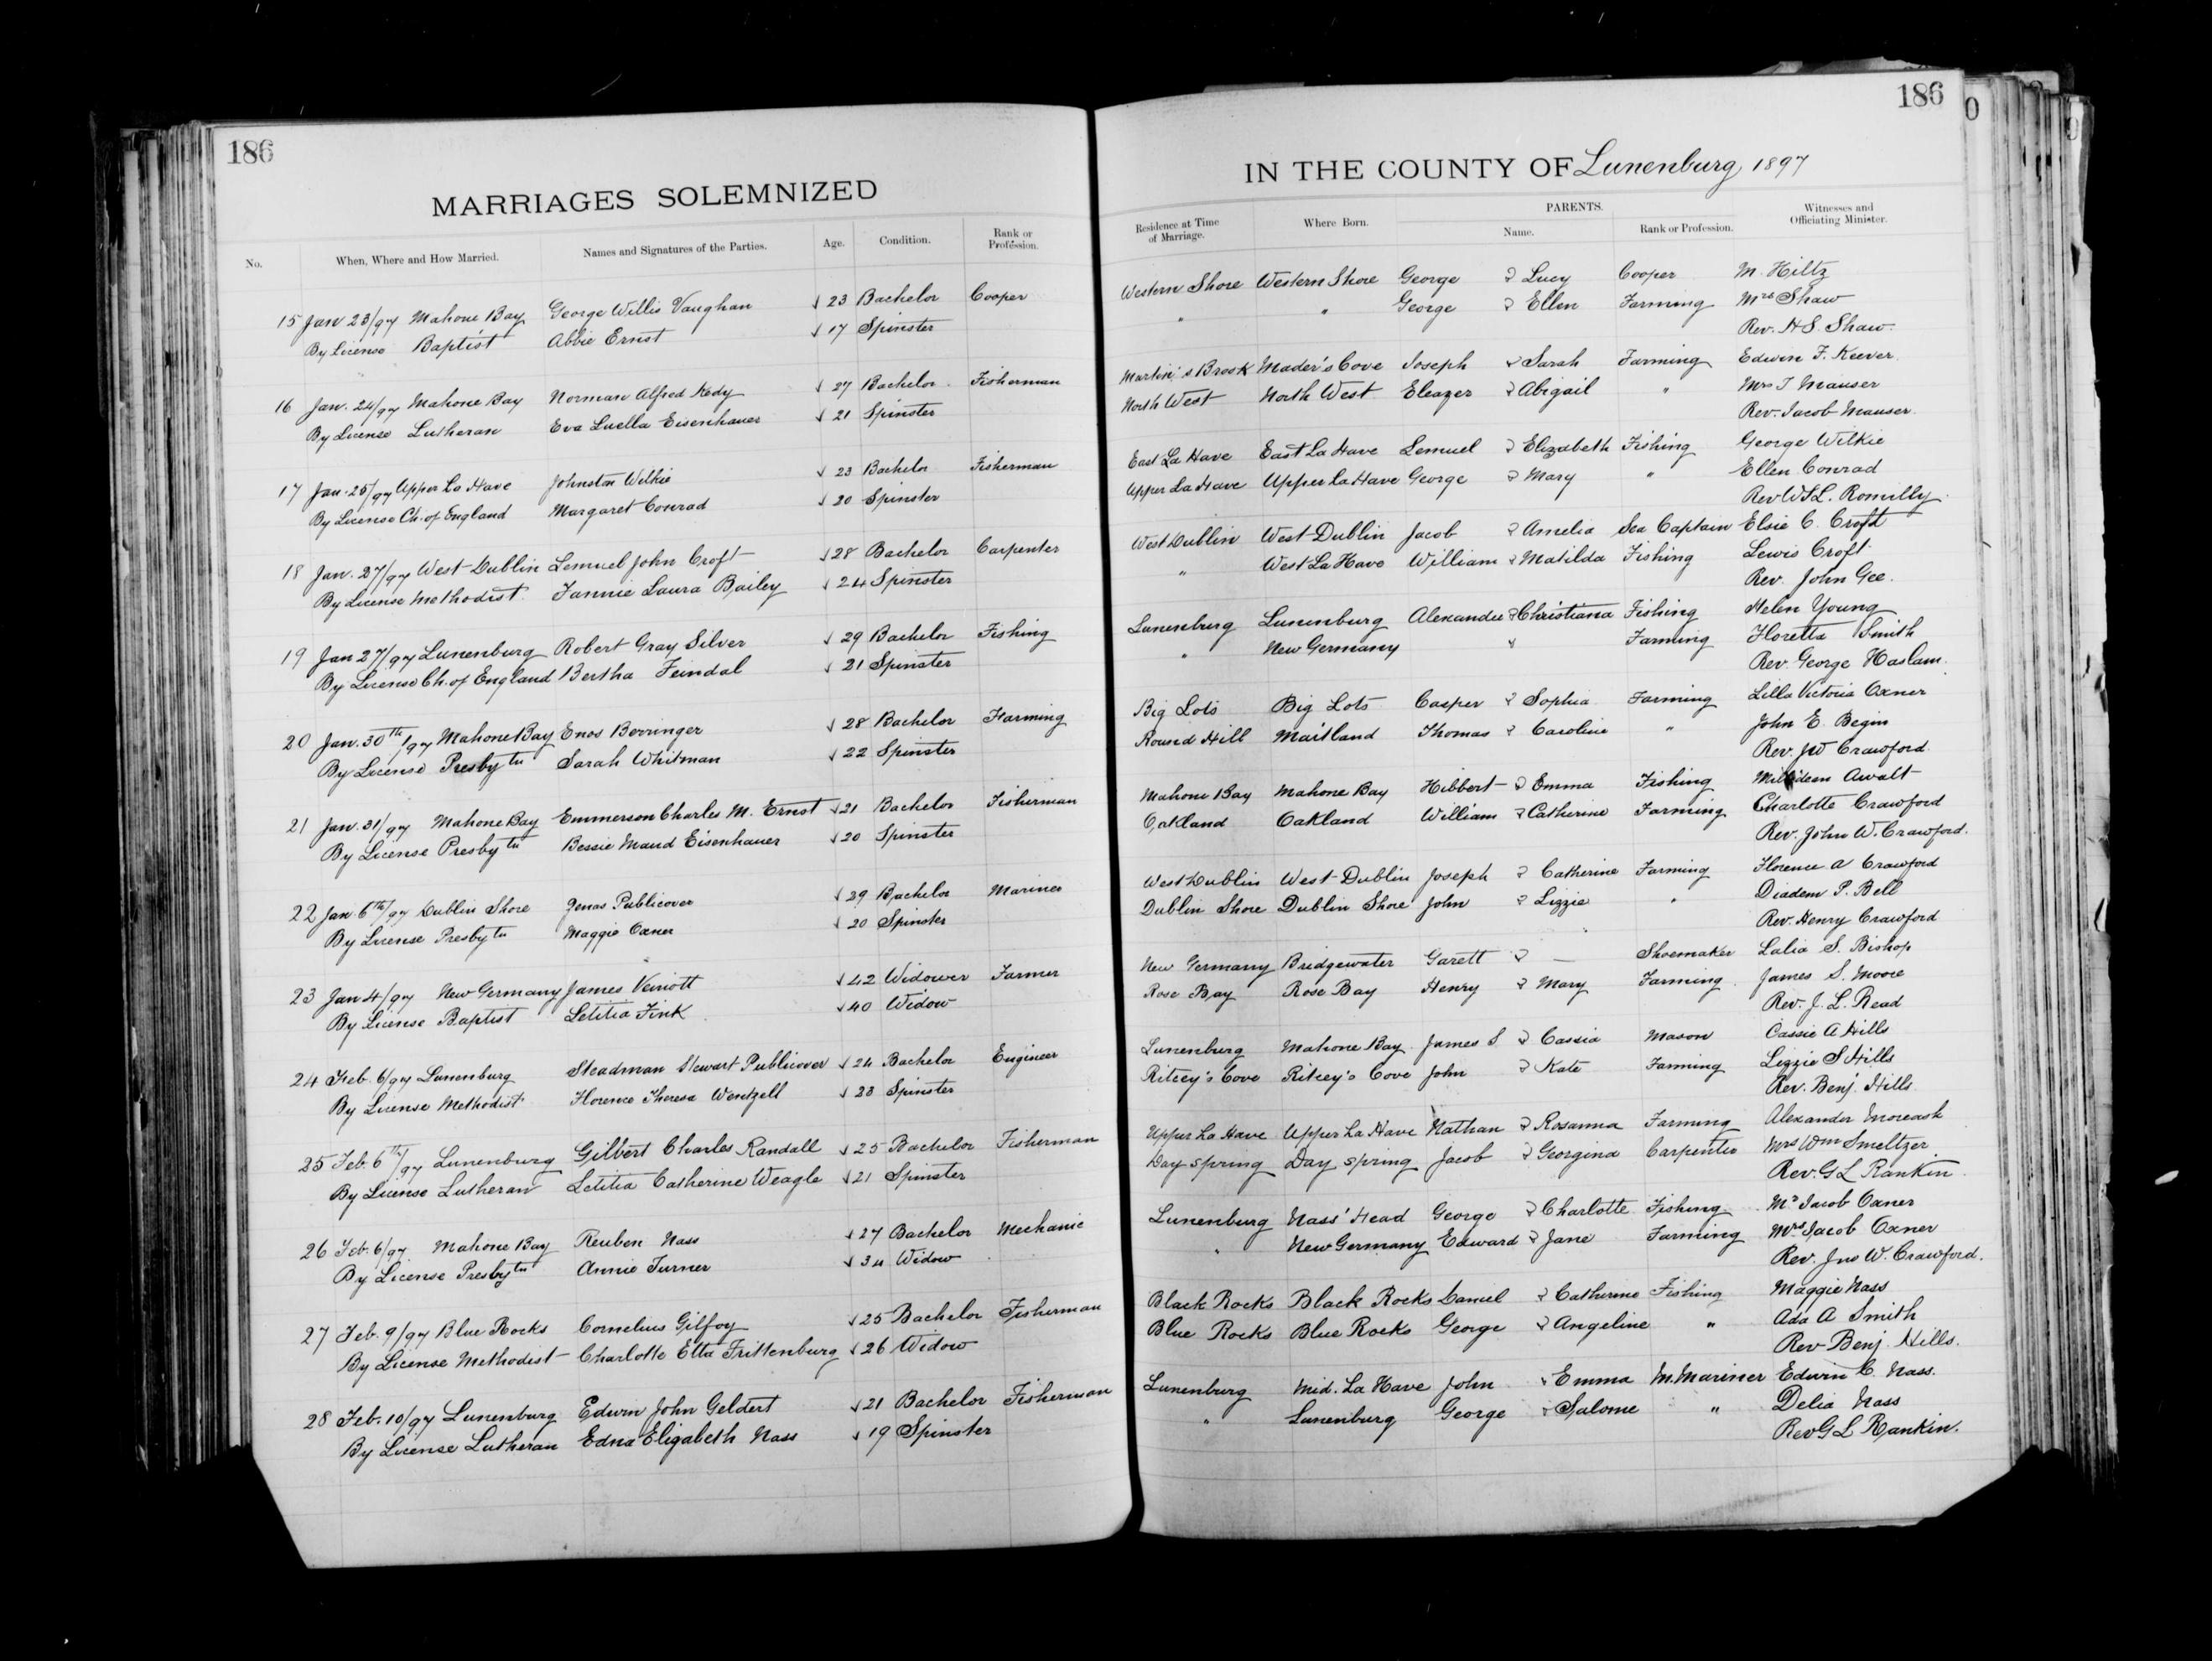 186
MARRIAGES SOLEMNIZED
No. When, Where and How Married. Names and Signatures of the Parties. Age. Condition. Rank or Profession.
15 Jan 23/97 Mahone Bay George Willis Vaughan 23 Bachelor Cooper
By License Baptist Abbie Ernst 17 Spinster
16 Jan. 24/97 Mahone Bay Norman Alfred Kedy 27 Bachelor Fisherman
By License Lutheran Eva Luella Eisenhauer 21 Spinster
17 Jan. 25/97 Upper La Have Johnston Wilkie 23 Bachelor Fisherman
By License Ch. of England Margaret Conrad 20 Spinster
18 Jan. 27/97 West Dublin Lemuel John Croft 28 Bachelor Carpenter
By License Methodist Fannie Laura Bailey 24 Spinster
19 Jan 27/97 Lunenburg Robert Gray Silver 29 Bachelor Fishing
By License Ch. of England Bertha Feindal 21 Spinster
20 Jan. 30th/97 Mahone Bay Enos Borringer 28 Bachelor Farming
By License Presbytn Sarah Whitman 22 Spinster
21 Jan. 31/97 Mahone Bay Emmerson Charles M. Ernst 21 Bachelor Fisherman
By License Presbytn Bessie Maud Eisenhauer 20 Spinster
22 Jan 6th/97 Dublin Shore Jonas Publicover 29 Bachelor Mariner
By License Presbytn Maggie Oxner 20 Spinster
23 Jan 4/97 New Germany James Veinott 42 Widower Farmer
By License Baptist Letitia Fink 40 Widow
24 Feb. 6/97 Lunenburg Steadman Stewart Publicover 24 Bachelor Engineer
By License Methodist Florence Theresa Wentzell 23 Spinster
25 Feb. 6th/97 Lunenburg Gilbert Charles Randall 25 Bachelor Fisherman
By License Lutheran Letitia Catherine Weagle 21 Spinster
26 Feb. 6/97 Mahone Bay Reuben Nass 27 Bachelor Mechanic
By License Presbytn Annie Turner 34 Widow
27 Feb. 9/97 Blue Rocks Cornelius Gilfoy 25 Bachelor Fisherman
By License Methodist Charlotte Etta Frittenburg 26 Widow
28 Feb. 10/97 Lunenburg Edwin John Geldert 21 Bachelor Fisherman
By License Lutheran Edna Elizabeth Nass 19 Spinster
186
IN THE COUNTY OF Lunenburg 1897
Residence at Time of Marriage. Where Born. PARENTS. Name. Rank or Profession. Witnesses and Officiating Minister.
Western Shore Western Shore George & Lucy Cooper M. Hiltz
" " George & Ellen Farming Mrs Shaw
Rev. H S. Shaw.
Martin's Brook Mader's Cove Joseph & Sarah Farming Edwin F. Keever
North West North West Eleazer & Abigail " Mrs J Mauser
Rev. Jacob Mauser.
East La Have East La Have Lemuel & Elizabeth Fishing George Wilkie
Upper La Have Upper La Have George & Mary " Ellen Conrad
Rev W S L. Romilly.
West Dublin West Dublin Jacob & Amelia Sea Captain Elsie C. Croft
" West La Have William & Matilda Fishing Lewis Croft
Rev. John Gee.
Lunenburg Lunenburg Alexander & Christiana Fishing Helen Young
" New Germany Farming Floretta Smith
Rev. George Haslam.
Big Lots Big Lots Casper & Sophia Farming Lilla Victoria Oxner
Round Hill Maitland Thomas & Caroline " John E. Begin
Rev. JW Crawford.
Mahone Bay Mahone Bay Hibbert & Emma Fishing Awalt
Oakland Oakland William & Catherine Farming Charlotte Crawford
Rev. John W. Crawford.
West Dublin West Dublin Joseph & Catherine Farming Florence A Crawford
Dublin Shore Dublin Shore John & Lizzie " Diadem P. Bell
Rev. Henry Crawford
New Germany Bridgewater Garett & — Shoemaker Lalia S. Bishop
Rose Bay Rose Bay Henry & Mary Farming James S. Moore
Rev. J. L. Read
Lunenburg Mahone Bay James S & Cassia Mason Cassie A Hills
Ritcey's Cove Ritcey's Cove John & Kate Farming Lizzie S Hills
Rev. Benj. Hills.
Upper La Have Upper La Have Nathan & Rosanna Farming Alexander Moreash
Day spring Day spring Jacob & Georgina Carpenter Mrs Wm Smeltzer
Rev. G L Rankin.
Lunenburg Nass' Head George & Charlotte Fishing Mr Jacob Oxner
" New Germany Edward & Jane Farming Mrs Jacob Oxner
Rev. Jno W. Crawford.
Black Rocks Black Rocks Daniel & Catherine Fishing Maggie Nass
Blue Rocks Blue Rocks George & Angeline " Ada A Smith
Rev Benj. Hills.
Lunenburg Mid. La Have John & Emma M. Mariner Edwin C. Nass.
" Lunenburg George & Salome " Delia Nass
Rev G L Rankin.